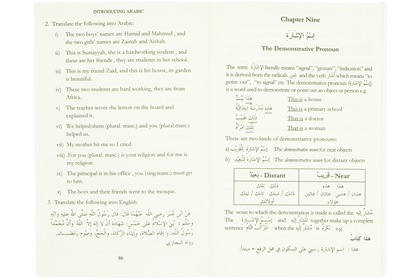 INTRODUCING ARABIC
2. Translate the following into Arabic:
i) The two boys' names are Hamid and Mahmud, and
the two girls' names are Zainab and Aishah.
ii) This is Sumayyah, she is a hardworking student, and
these are her friends, they are students in her school.
iii) This is my friend Zaid, and this is his house, its garden
is beautiful.
iv) These two students are hard working, they are from
Africa.
v) The teacher wrote the lesson on the board and
explained it.
vi) We helped them (plural masc.) and you (plural.masc.)
helped us.
vii) My mother hit me so I cried.
viii) For you (plural masc.) is your religion and for me is
my religion.
ix) The principal is in his office, you (sing.masc.) must go
to him.
x) The boys and their friends went to the mosque.
3. Translate the following into English:
عن ابن عمر رضي الله عنهما قال: قال رسول الله صلى الله عليه وآله
وسلم: بني الإسلام على خمس: شهادة أن لا إله إلا الله وأن محمدا
رسول الله، وإقام الصلاة، وإيتاء الزكاة، والحج، وصوم رمضان.
رواه البخاري
86
Chapter Nine
اِسْمُ الْإِشَارَةِ
The Demonstrative Pronoun
The term الإشارة literally means "signal", "gesture", "indication" and
it is derived from the radicals شور and the verb أشار which means "to
point out", "to signal" on. The demonstrative pronoun (اسم الإشارة)
is a word used to demonstrate or point out an object or person e.g.
هذا بيت This is a house
هذه مدرسة ابتدائية This is a primary school
ذلك طبيب That is a doctor
تلك امرأة That is a woman
There are two kinds of demonstrative pronouns:
a) اسم الإشارة للقريب The demonstrative noun for near objects
b) اسم الإشارة للبعيد The demonstrative noun for distant objects
بعيد - Distant قريب - Near
ذلك تلك هذا هذه
هذان / هذين هاتان / هاتين
أولئك هؤلاء
The noun to which the demonstration is made is called the مشار إليه
The اسم الإشارة and مشار إليه together make up a complete
sentence when the مشار إليه is نكرة e.g.
هذا كتاب
هذا : اسم الإشارة، مبني على السكون في محل الرفع = مبتدأ